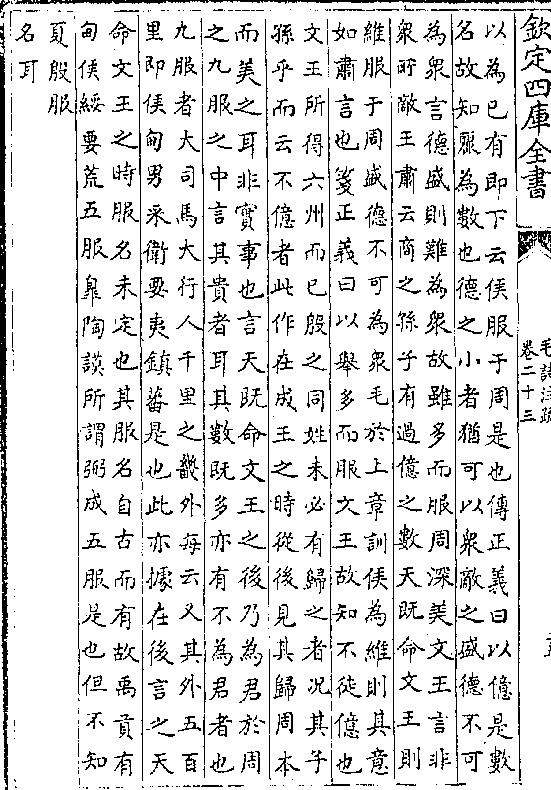 欽定四庫全書
毛詩注疏
卷二十三
以為已有即下云侯服于周是也傳正義曰以億是數
名故知麗為數也德之小者猶可以衆敵之盛德不可
為衆言德盛則難為衆故雖多而服周深美文王言非
衆所敵王肅云商之孫子有過億之數天既命文王則
維服于周盛德不可為衆毛於上章訓侯為維則其意
如肅言也箋正義曰以舉多而服文王故知不徒億也
文王所得六州而已殷之同姓未必有歸之者况其子
孫乎而云不億者此作在成王之時從後見其歸周本
而美之耳非實事也言天既命文王之後乃為君於周
之九服之中言其貴者耳其數既多亦有不為君者也
九服者大司馬大行人千里之畿外每云又其外五百
里即侯甸男采衛要夷鎮蕃是也此亦據在後言之天
命文王之時服名未定也其服名自古而有故禹貢有
甸侯綏要荒五服臯陶謨所謂弼成五服是也但不知
夏殷服
名耳